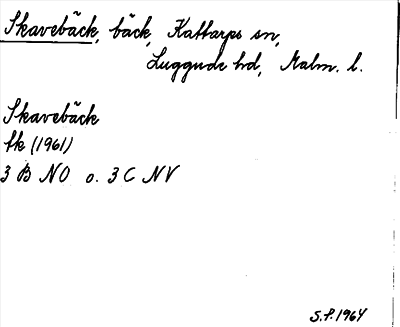 Skavebäck, bäck, Kattarps sn,
Luggude hd, Malm. l.
Skavebäck
Ek (1961)
3 B NO o. 3 C NV
S.F. 1964